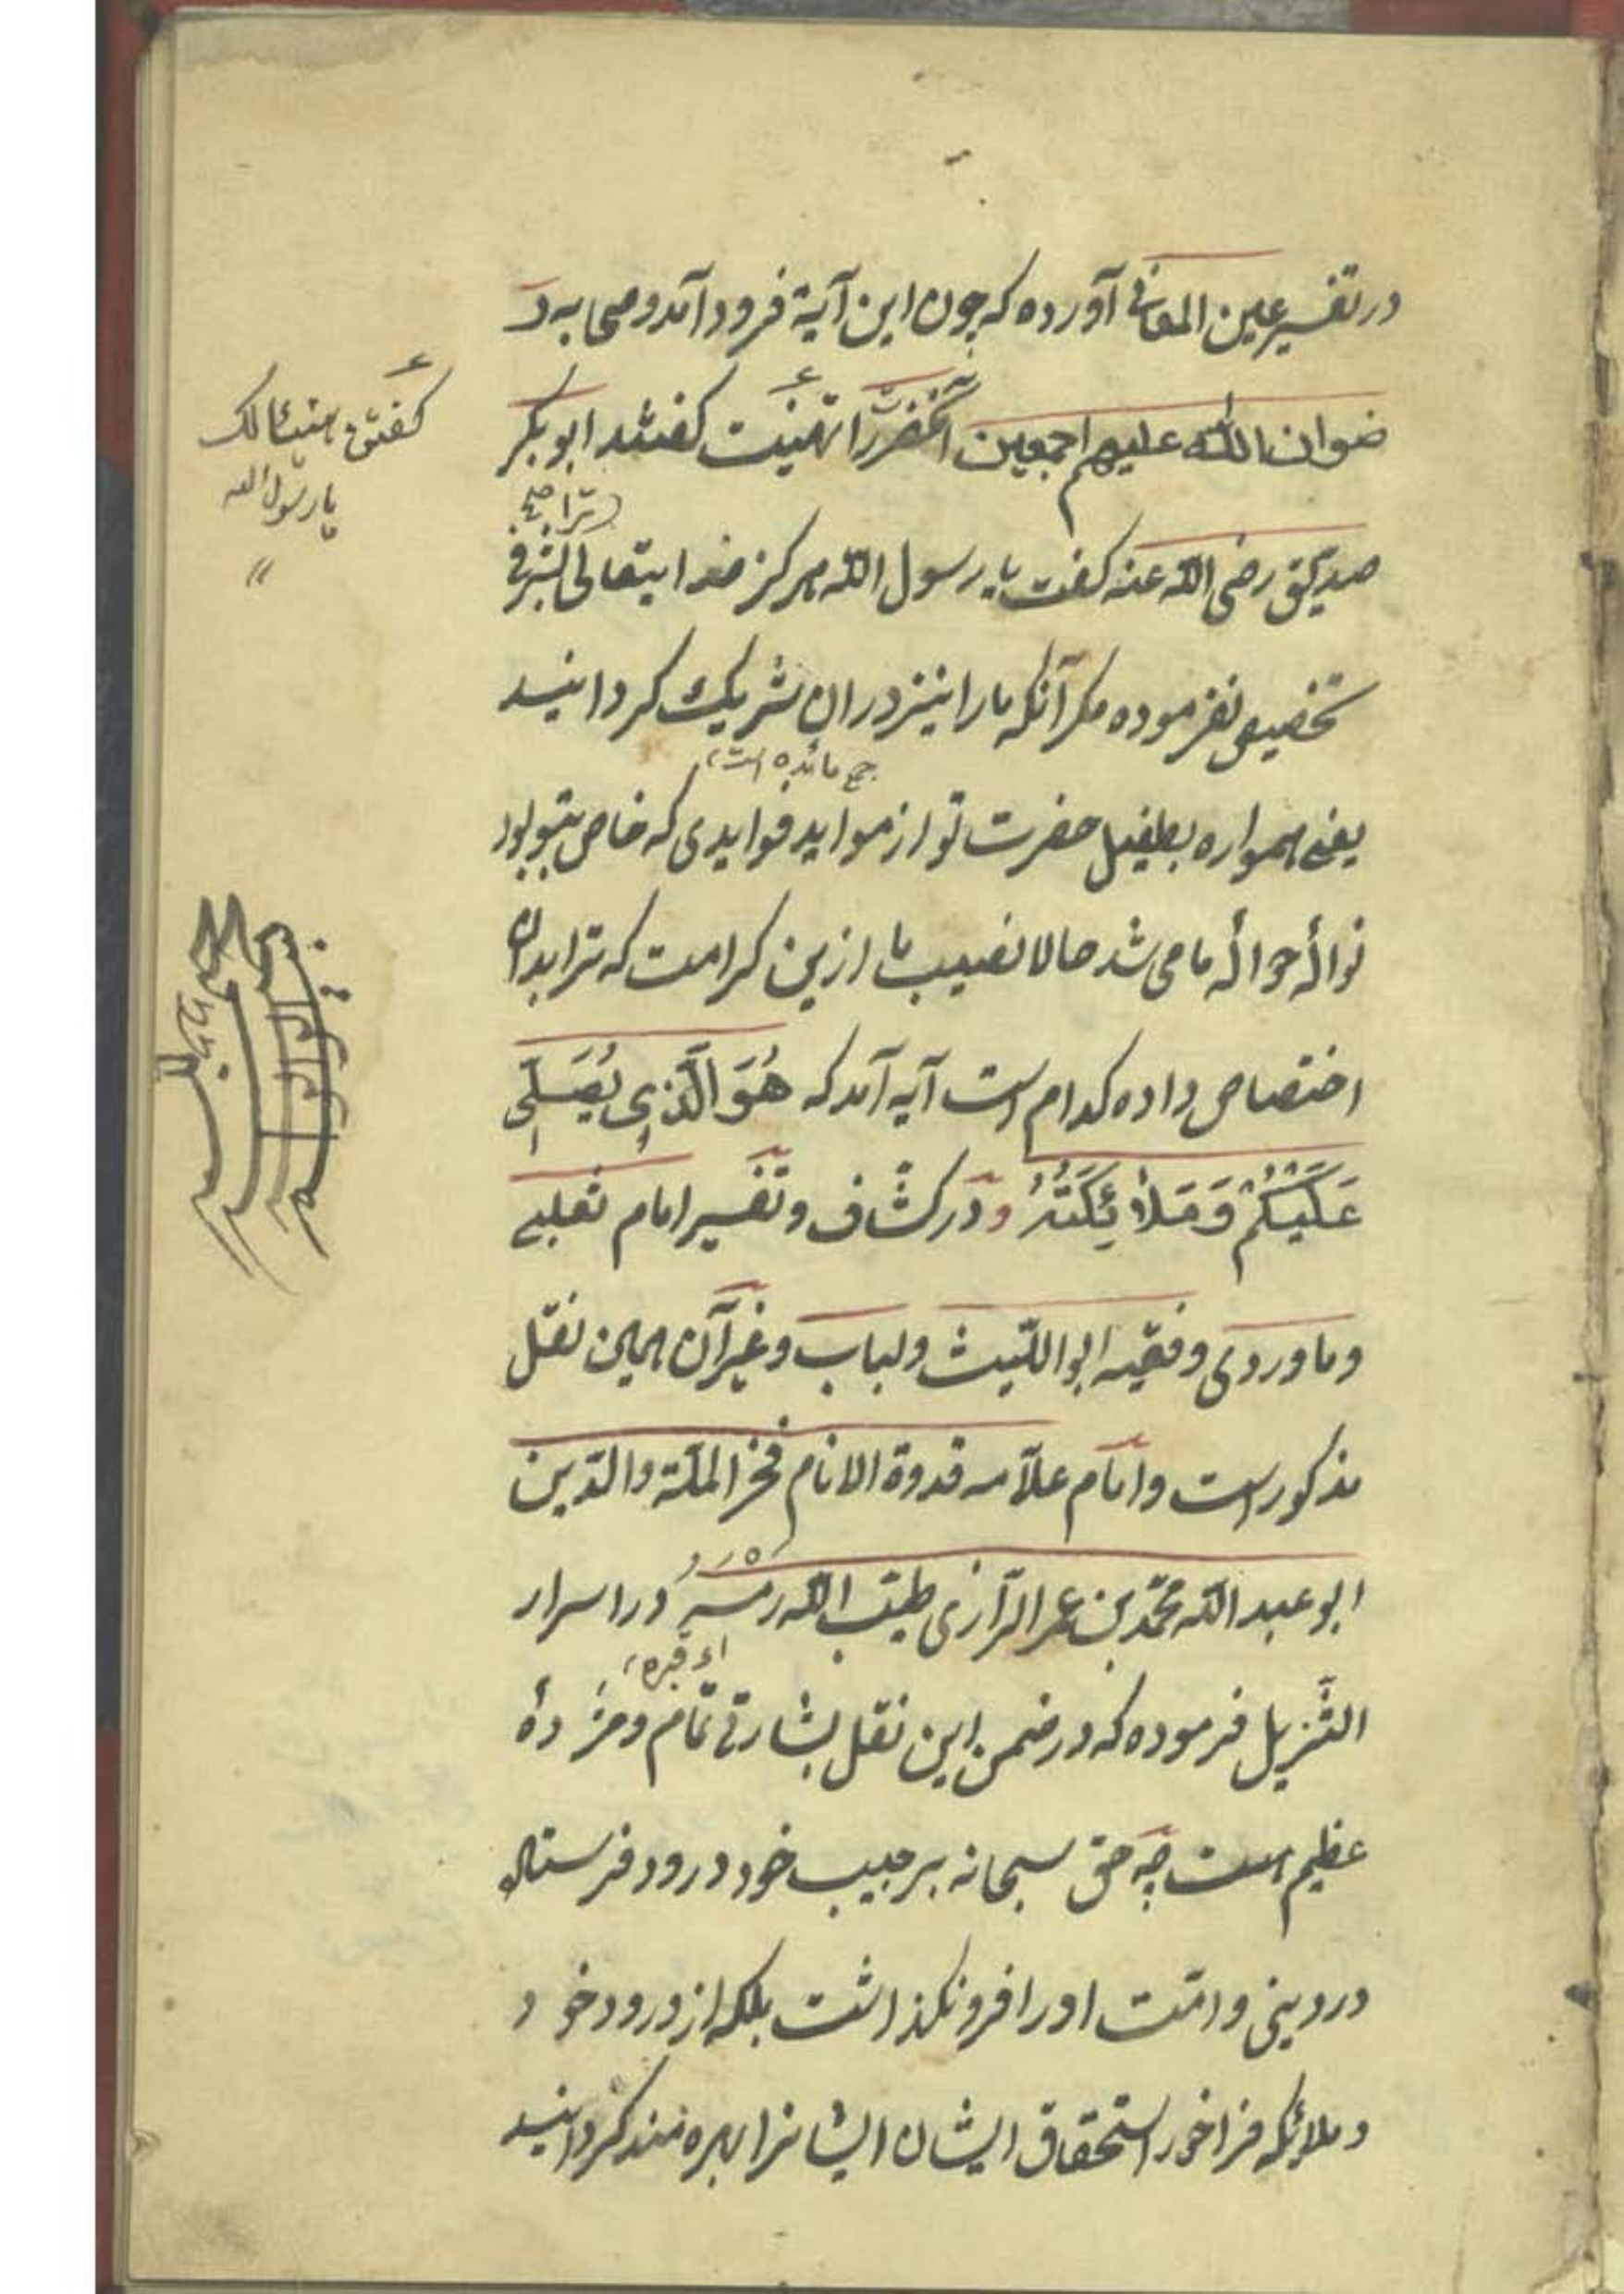 در تفسیر عین المعانی آورده که چون این آیة فرود آمد و صحابه ر
ضوان الله علیهم اجمعین آنحضرت را تهنیت کفتند ابو بکر
ترا صح
صدیق رضی الله عنه کفت یا رسول الله هرکز خدایتعالی بشرفی
تخصیص نفرموده مکر آنکه ما را نیز در ان شریک کردانید
جمع مائده است
یعنی همواره بطفیل حضرت تو از مواید فوایدی که خاص بتو بود
نوالۀ حوالۀ ما می شد حالا نصیب ما ازین کرامت که ترا بدان
اختصاص داده کدام است آیه آمد که هُوَ الَّذِی یُصَلِّی
عَلَیْکُمْ وَمَلاَئِکَتُهُ و در کشّاف و تفسیر امام ثعلبی
و ماوردی و فقیه ابو اللّیث و لباب و غیر آن همین نقل
مذکور است و امام علّامه قدوة الانام فخر الملّة والدّین
ابو عبد الله محمّد بن عمر الرّازی طیّب الله رمسَهُ در اسرار
ای قبره
التّنزیل فرموده که در ضمن این نقل بشارتی تمام و مژدۀ
عظیم است چه حق سبحانه بر حبیب خود درود فرستاد
در دینی و امّت او را فرو نکذاشت بلکه از درود خود
و ملائکه فراخور استحقاق ایشان ایشانرا بهره مند کردانید
کفتن هنیئا لک
یا رسول الله